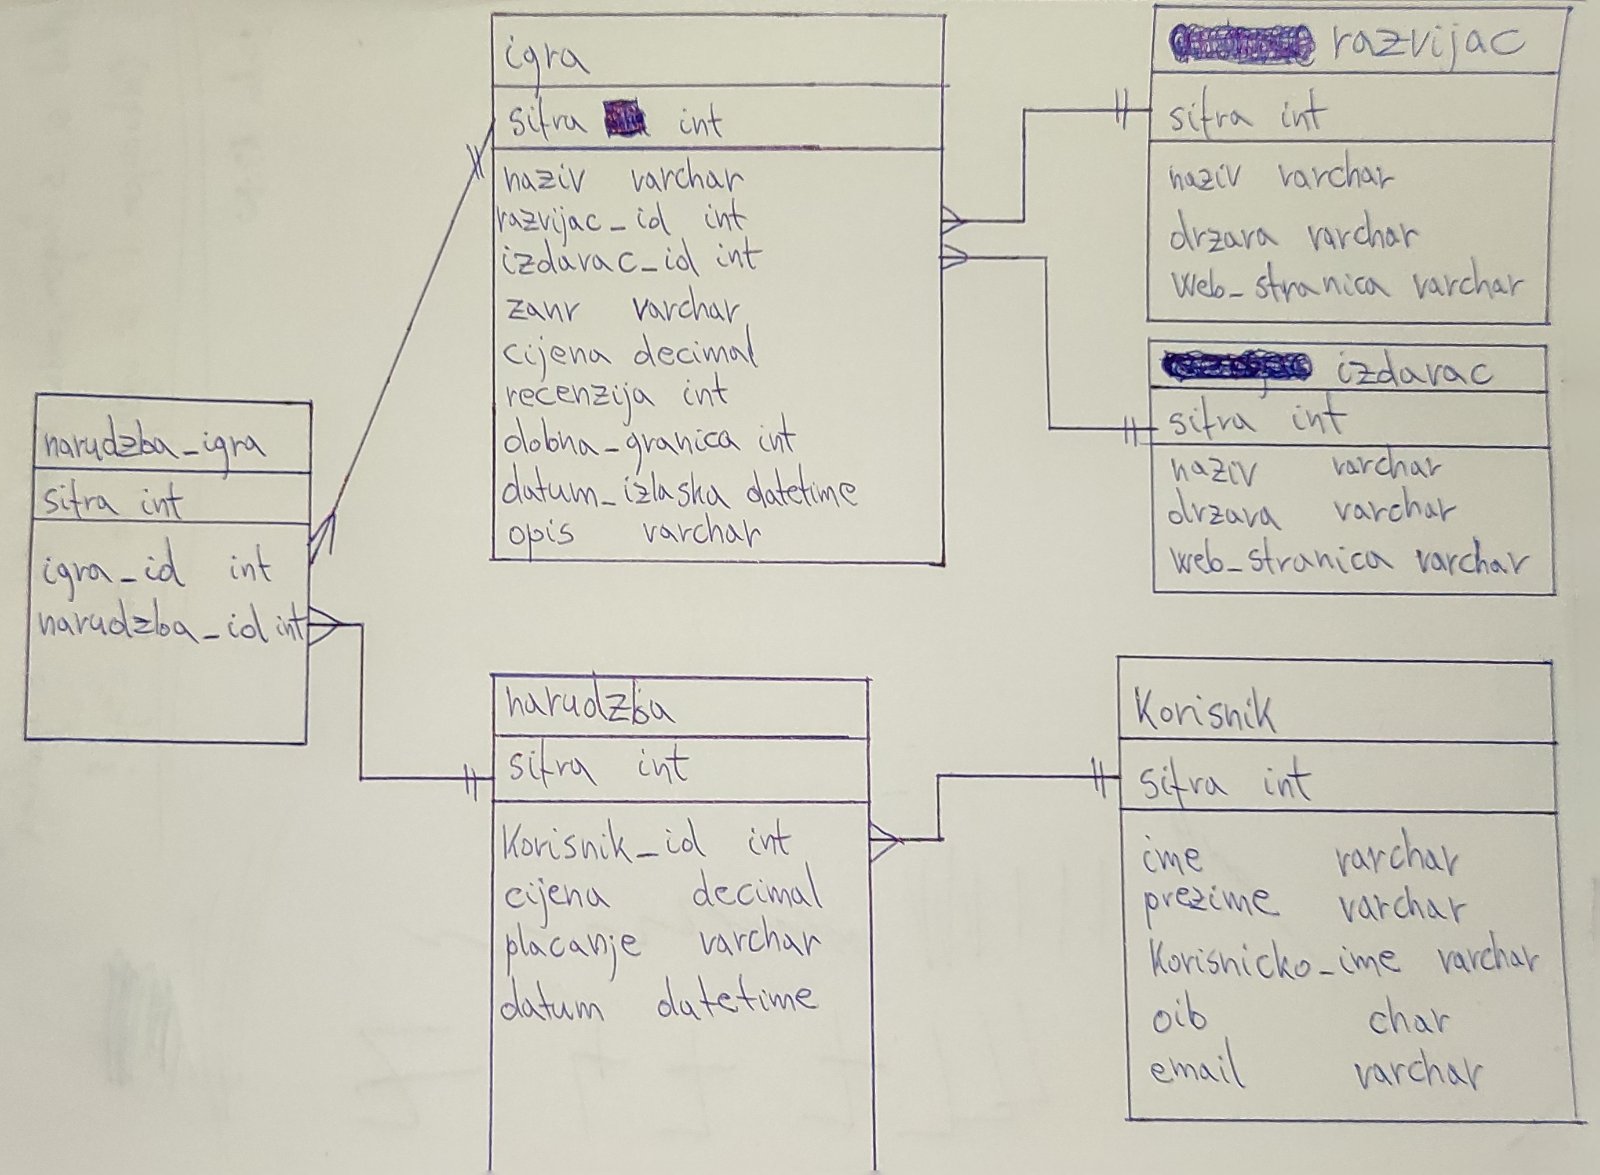 igra
sifra int
naziv varchar
razvijac_id int
izdavac_id int
zanr varchar
cijena decimal
recenzija int
dobna_granica int
datum_izlaska datetime
opis varchar
razvijac
sifra int
naziv varchar
drzava varchar
web_stranica varchar
izdavac
sifra int
naziv varchar
drzava varchar
web_stranica varchar
narudzba_igra
sifra int
igra_id int
narudzba_id int
narudzba
sifra int
korisnik_id int
cijena decimal
placanje varchar
datum datetime
korisnik
sifra int
ime varchar
prezime varchar
korisnicko_ime varchar
oib char
email varchar